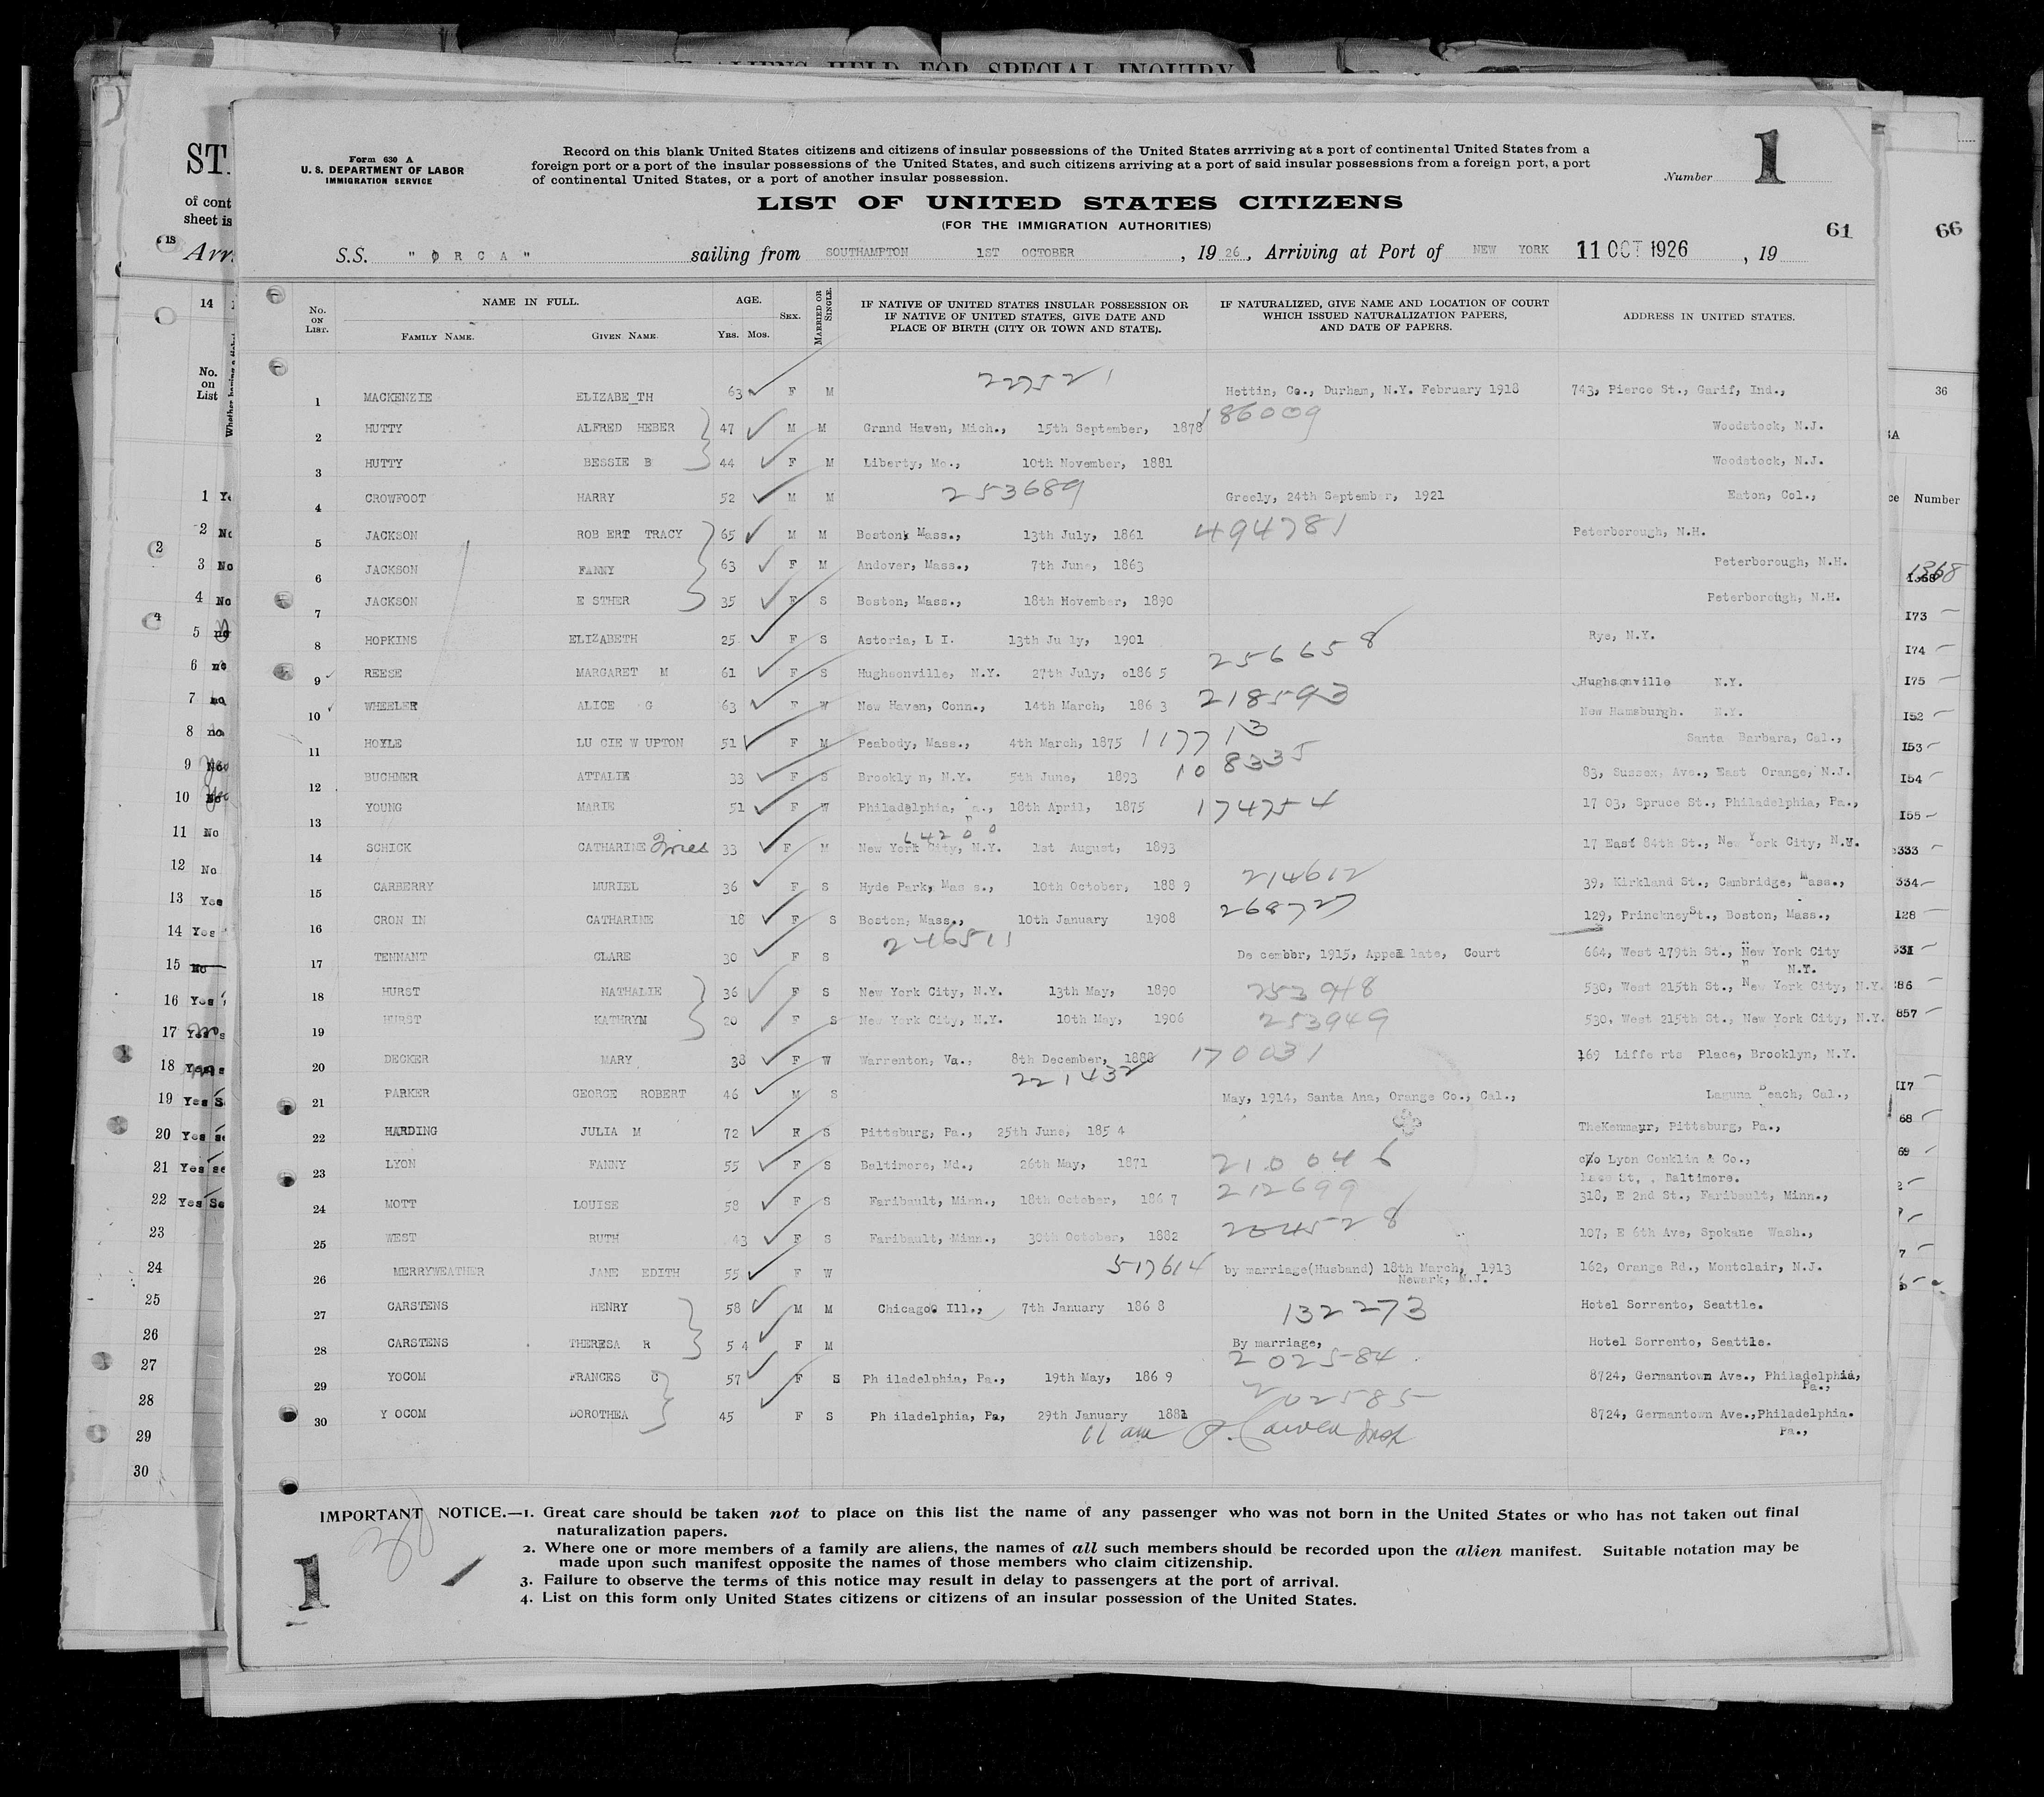 ALIENS HELD FOR SPECIAL INQUIRY
Form 630 A
U. S. DEPARTMENT OF LABOR
IMMIGRATION SERVICE
Record on this blank United States citizens and citizens of insular possessions of the United States arrriving at a port of continental United States from a
foreign port or a port of the insular possessions of the United States, and such citizens arriving at a port of said insular possessions from a foreign port, a port
of continental United States, or a port of another insular possession.
Number 1
LIST OF UNITED STATES CITIZENS
(FOR THE IMMIGRATION AUTHORITIES)
61
66
S.S. "ORCA" sailing from SOUTHAMPTON 1ST OCTOBER, 1926, Arriving at Port of NEW YORK 11 OCT 1926, 19
No. ON LIST. NAME IN FULL. FAMILY NAME. GIVEN NAME. AGE. YRS. MOS. SEX. MARRIED OR SINGLE. IF NATIVE OF UNITED STATES INSULAR POSSESSION OR IF NATIVE OF UNITED STATES, GIVE DATE AND PLACE OF BIRTH (CITY OR TOWN AND STATE). IF NATURALIZED, GIVE NAME AND LOCATION OF COURT WHICH ISSUED NATURALIZATION PAPERS, AND DATE OF PAPERS. ADDRESS IN UNITED STATES.
1 MACKENZIE ELIZABE_TH 63 F M 227521 Hettin, Co., Durham, N.Y. February 1918 743, Pierce St., Garif, Ind.,
2 HUTTY ALFRED HEBER 47 M M Grand Haven, Mich., 15th September, 1878 186009 Woodstock, N.J.
3 HUTTY BESSIE B 44 F M Liberty, Mo., 10th November, 1881 Woodstock, N.J.
4 CROWFOOT HARRY 52 M M 253689 Greely, 24th September, 1921 Eaton, Col.,
5 JACKSON ROB ERT TRACY 65 M M Boston, Mass., 13th July, 1861 494781 Peterborough, N.H.
6 JACKSON FANNY 63 F M Andover, Mass., 7th June, 1863 Peterborough, N.H.
7 JACKSON E STHER 35 F S Boston, Mass., 18th November, 1890 Peterborough, N.H.
8 HOPKINS ELIZABETH 25 F S Astoria, L I. 13th Ju ly, 1901 256658 Rye, N.Y.
9 REESE MARGARET M 61 F S Hughsonville, N.Y. 27th July, 186 5 Hughsonville N.Y.
10 WHEELER ALICE G 63 F W New Haven, Conn., 14th March, 186 3 218593 New Hamsburgh. N.Y.
11 HOYLE LU CIE W UPTON 51 F M Peabody, Mass., 4th March, 1875 117713 Santa Barbara, Cal.,
12 BUCHNER ATTALIE 33 F S Brookly n, N.Y. 5th June, 1893 108335 83, Sussex, Ave., East Orange, N.J.
13 YOUNG MARIE 51 F W Philadelphia, Pa., 18th April, 1875 174754 17 03, Spruce St., Philadelphia, Pa.,
14 SCHICK CATHARINE 33 F M New York City, N.Y. 1st August, 1893 64200 17 East 84th St., New York City, N.Y.
15 CARBERRY MURIEL 36 F S Hyde Park, Mas s., 10th October, 188 9 214612 39, Kirkland St., Cambridge, Mass.,
16 CRON IN CATHARINE 18 F S Boston, Mass., 10th January 1908 268727 129, Princkney St., Boston, Mass.,
17 TENNANT CLARE 30 F S 246511 De cember, 1915, Appea late, Court 664, West 179th St., New York City N.Y.
18 HURST NATHALIE 36 F S New York City, N.Y. 13th May, 1890 253948 530, West 215th St., New York City, N.Y.
19 HURST KATHRYN 20 F S New York City, N.Y. 10th May, 1906 253949 530, West 215th St., New York City, N.Y.
20 DECKER MARY 38 F W Warrenton, Va., 8th December, 1888 170031 169 Liffe rts Place, Brooklyn, N.Y.
21 PARKER GEORGE ROBERT 46 M S 221432 May, 1914, Santa Ana, Orange Co., Cal., Laguna Beach, Cal.,
22 HARDING JULIA M 72 F S Pittsburg, Pa., 25th June, 185 4 TheKenmayr, Pittsburg, Pa.,
23 LYON FANNY 55 F S Baltimore, Md., 26th May, 1871 210046 c/o Lyon Conklin & Co., St, , Baltimore.
24 MOTT LOUISE 58 F S Faribault, Minn., 18th October, 186 7 212699 318, E 2nd St., Faribault, Minn.,
25 WEST RUTH 43 F S Faribault, Minn., 30th October, 1882 204528 107, E 6th Ave, Spokane Wash.,
26 MERRYWEATHER JANE EDITH 55 F W 517614 by marriage(Husband) 18th March, 1913 Newark, N.J. 162, Orange Rd., Montclair, N.J.
27 CARSTENS HENRY 58 M M Chicago, Ill., 7th January 186 8 132273 Hotel Sorrento, Seattle.
28 CARSTENS THERESA R 5 4 F M By marriage, Hotel Sorrento, Seattle.
29 YOCOM FRANCES C 57 F S Ph iladelphia, Pa., 19th May, 186 9 202584 8724, Germantown Ave., Philadelphia, Pa.,
30 Y OCOM DOROTHEA 45 F S Ph iladelphia, Pa, 29th January 1881 202585 8724, Germantown Ave.,Philadelphia. Pa.,
11 am
IMPORTANT NOTICE.—1. Great care should be taken not to place on this list the name of any passenger who was not born in the United States or who has not taken out final
naturalization papers.
2. Where one or more members of a family are aliens, the names of all such members should be recorded upon the alien manifest. Suitable notation may be
made upon such manifest opposite the names of those members who claim citizenship.
3. Failure to observe the terms of this notice may result in delay to passengers at the port of arrival.
4. List on this form only United States citizens or citizens of an insular possession of the United States.
30
1